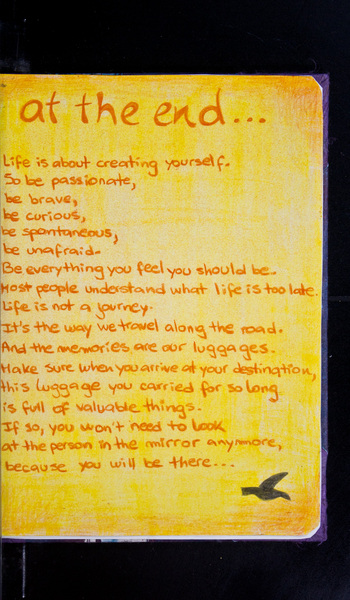 at the end...
Life is about creating yourself.
So be passionate,
be brave,
be curious,
be spontaneous,
be unafraid.
Be everything you feel you should be.
Most people understand what life is too late.
Life is not a journey.
It's the way we travel along the road.
And the memories are our luggages.
Make sure when you arrive at your destination,
this luggage you carried for so long
is full of valuable things.
If so, you won't need to look
at the person in the mirror anymore,
because you will be there...